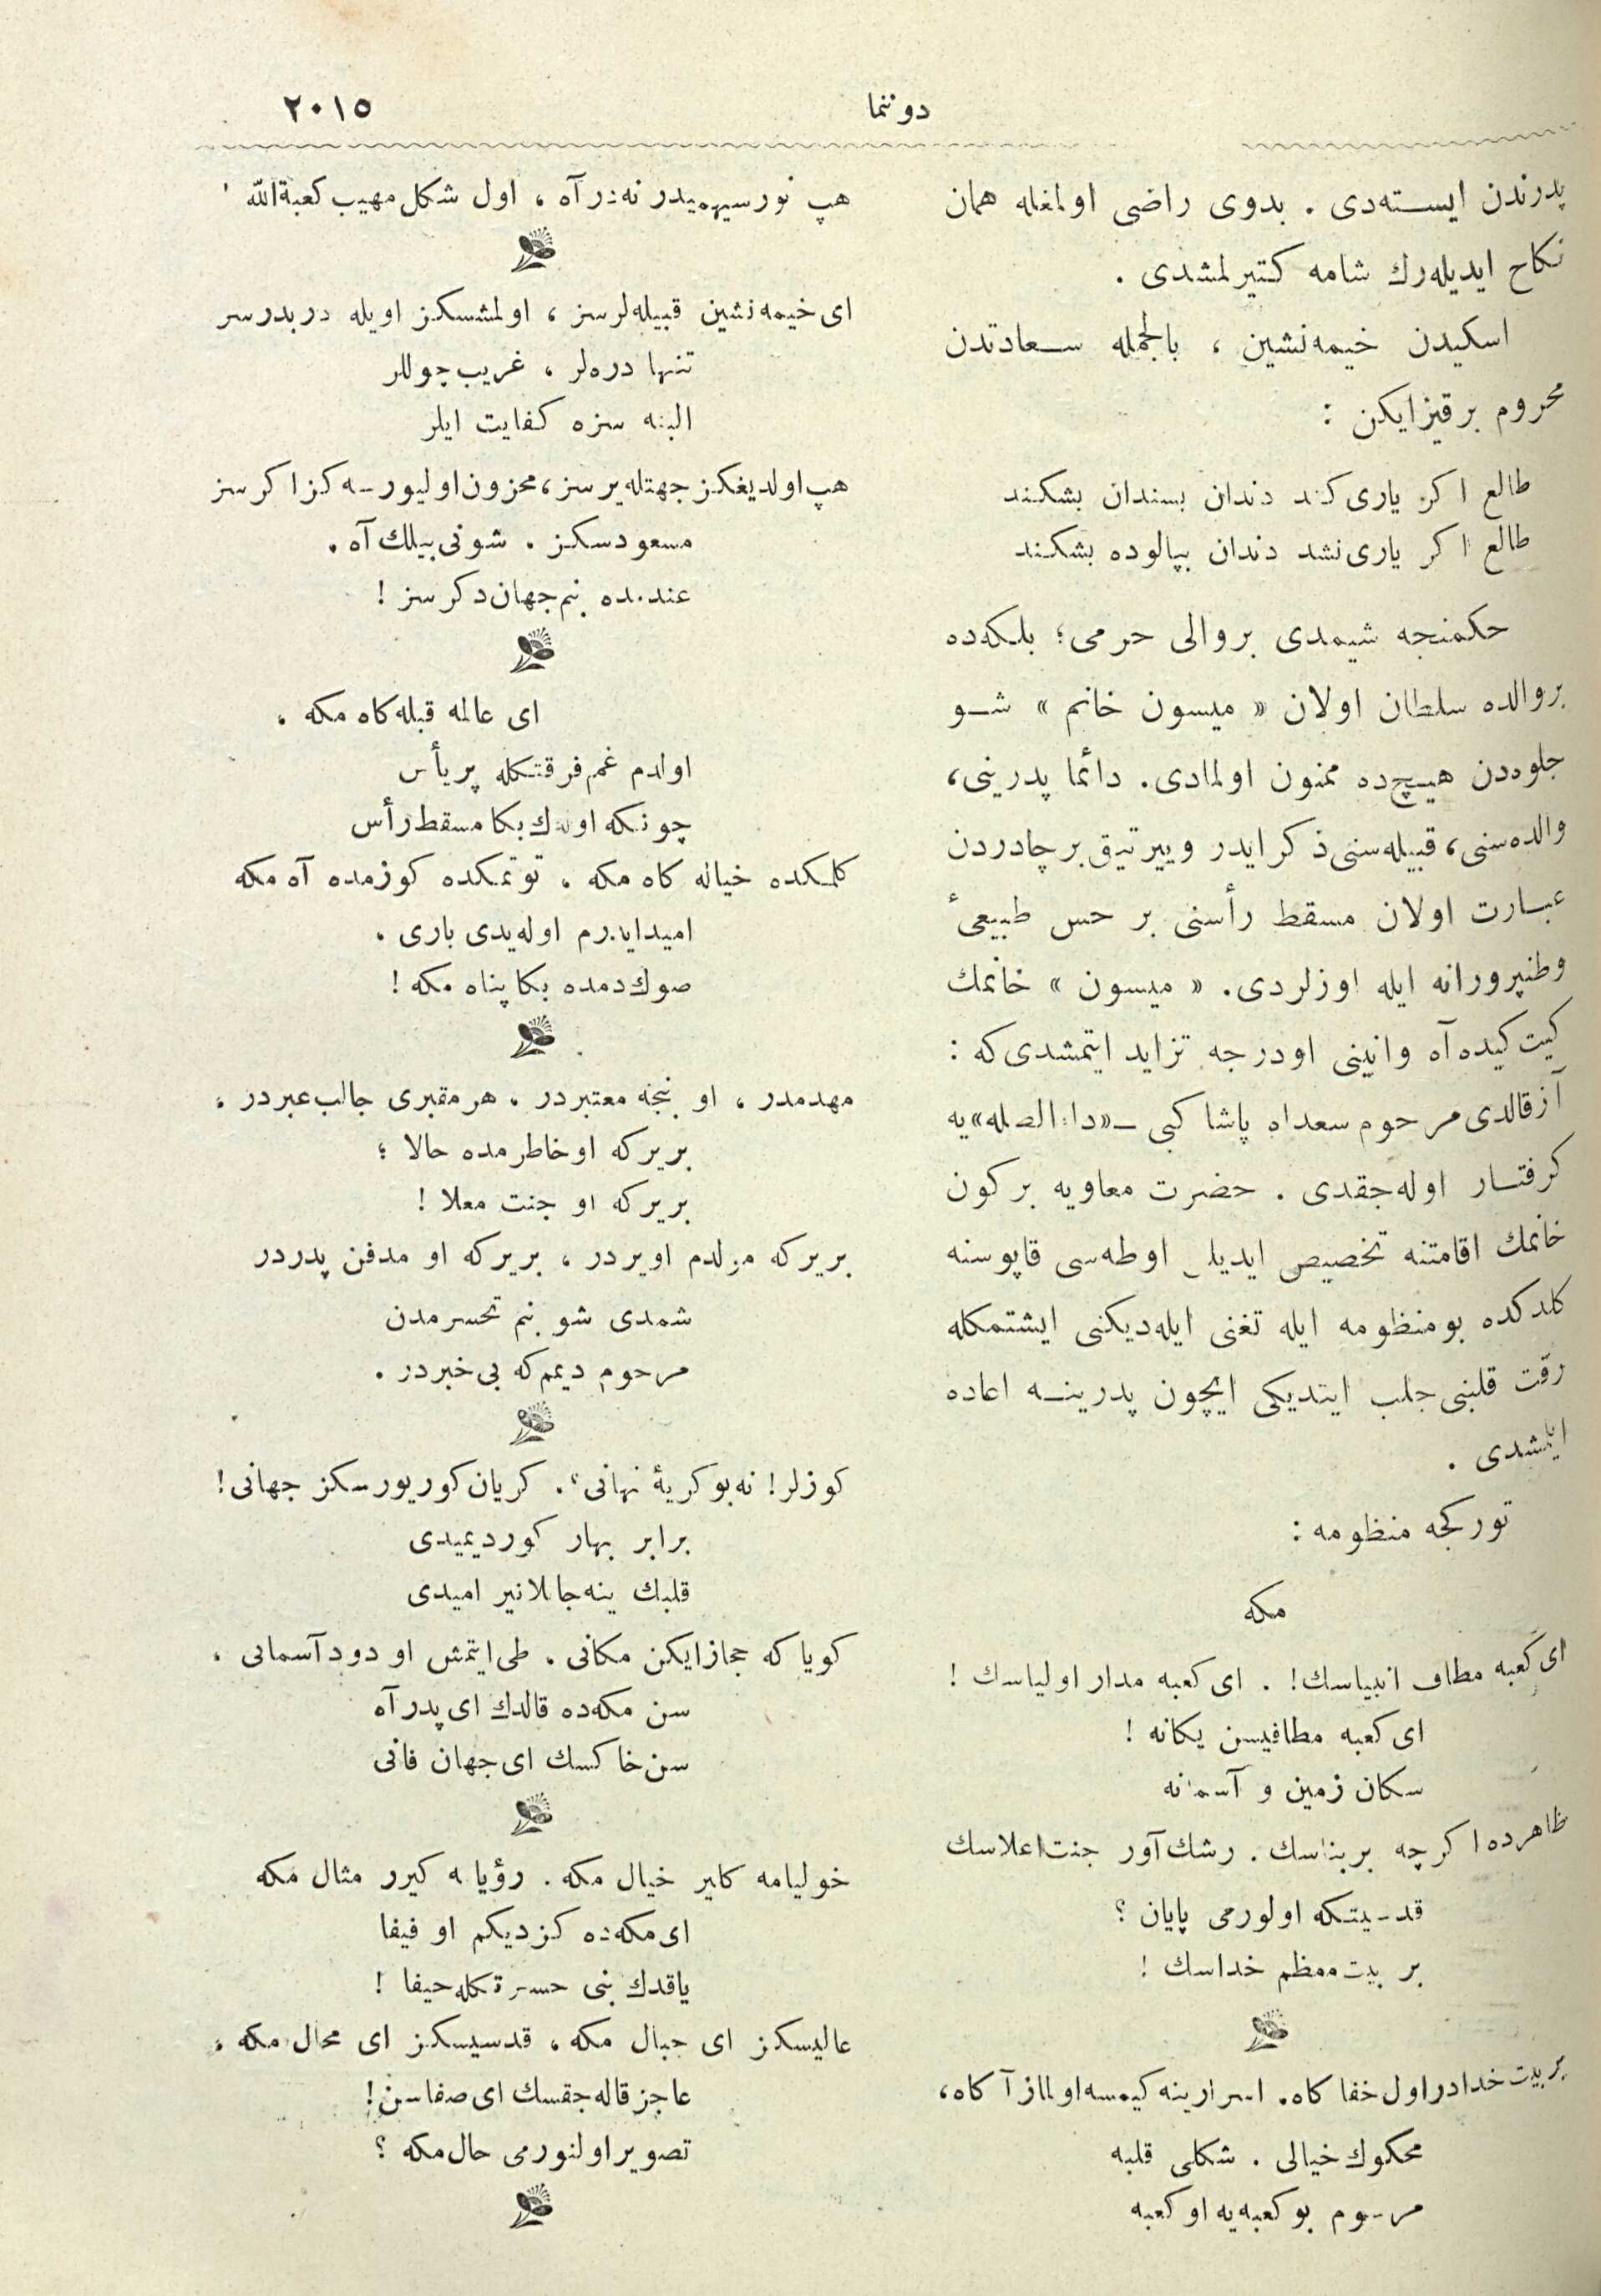 دوننما
٢٠١٥
پدرندن ایسته‌دی . بدوی راضی اولمغله همان
نكاح ایدیله‌رك شامه كتیرلمشدی .
اسكیدن خیمه‌نشین ، بالجمله سعادتدن
محروم برقیزایكن :
طالع اكر یاری كند دندان بسندان بشكند
طالع اكر یاری نشد دندان بپالوده بشكند
حكمنجه شیمدی بروالی حرمی؛ بلكه‌ده
بروالده سلطان اولان « میسون خانم » شو
جلوه‌دن هیچ‌ده ممنون اولمادی. دائما پدرینی،
والده‌سنی، قبیله‌سنی ذكر ایدر وییرتیق برچادردن
عبارت اولان مسقط رأسنی بر حس طبیعیٔ
وطنپرورانه ایله اوزلردی. « میسون » خانمك
كیت كیده آه وانینی اودرجه تزاید ایتمشدی‌كه :
آزقالدی مرحوم سعدالله پاشا كبی ـ «داءالصله» یه
كرفتار اوله‌جقدی . حضرت معاویه بركون
خانمك اقامتنه تخصیص ایدیلن اوطه‌سی قاپوسنه
كلدكده بومنظومه ایله تغنی ایله‌دیكنی ایشتمكله
رقت قلبنی جلب ایتدیكی ایچون پدرینه اعاده
ایتمشدی .
توركجه منظومه :
مكه
ای كعبه مطاف انبیاسك! . ای كعبه مدار اولیاسك !
ای كعبه مطافیسن یكانه !
سكان زمین و آسمانه
ظاهرده اكرچه بربناسك . رشك‌آور جنت اعلاسك
قدسیتكه اولورمی پایان ؟
بر بیت معظم خداسك !
بربیت خدادر اول خفا كاه. اسرارینه كیمسه اولماز آكاه،
محكوك خیالی . شكلی قلبه
مرسوم بو كعبه‌یه او كعبه
هپ نورسیهمیدر نه‌در آه ، اول شكل مهیب كعبةالله '
ای خیمه‌نشین قبیله‌لرسز ، اولمشسكز اویله دربدرسر
تنها دره‌لر ، غریب چوللر
البته سزه كفایت ایلر
هپ اولدیغكز جهتله یرسز، محزون اولیورسه‌كز اكر سز
مسعودسكز . شونی بیلك آه .
عندمده بنم جهان دكرسز !
ای عالمه قبله‌كاه مكه .
اولدم غم فرقتكله پر یأس
چونكه اولدك بكا مسقط رأس
كلمكده خیاله كاه مكه . توتمكده كوزمده آه مكه
امیدایدرم اوله‌یدی باری .
صوك دمده بكا پناه مكه !
مهدمدر ، او نجه معتبردر . هرمقبری جالب عبردر .
بریركه اوخاطرمده حالا ؛
بریركه او جنت معلا !
بریركه مولدم اویردر ، بریركه او مدفن پدردر
شمدی شو بنم تحسرمدن
مرحوم دیمم كه بی‌خبردر .
كوزلر! نه‌بوكریهٔ نهانی؟. كریان كوریورسكز جهانی!
برابر بهار كوردیمیدی
قلبك ینه‌جانلانیر امیدی
كویا كه حجازایكن مكانی . طی ایتمش او دود آسمانی .
سن مكه‌ده قالدك ای پدر آه
سن خاكسك ای جهان فانی
خولیامه كلیر خیال مكه . رؤیایه كیرر مثال مكه
ای مكه‌ده كزدیكم او فیفا
یاقدك بنی حسرتكله حیفا !
عالیسكز ای جبال مكه ، قدسیسكز ای محال مكه .
عاجز قاله‌جقسك ای صفاسن!
تصویر اولنورمی حال مكه ؟